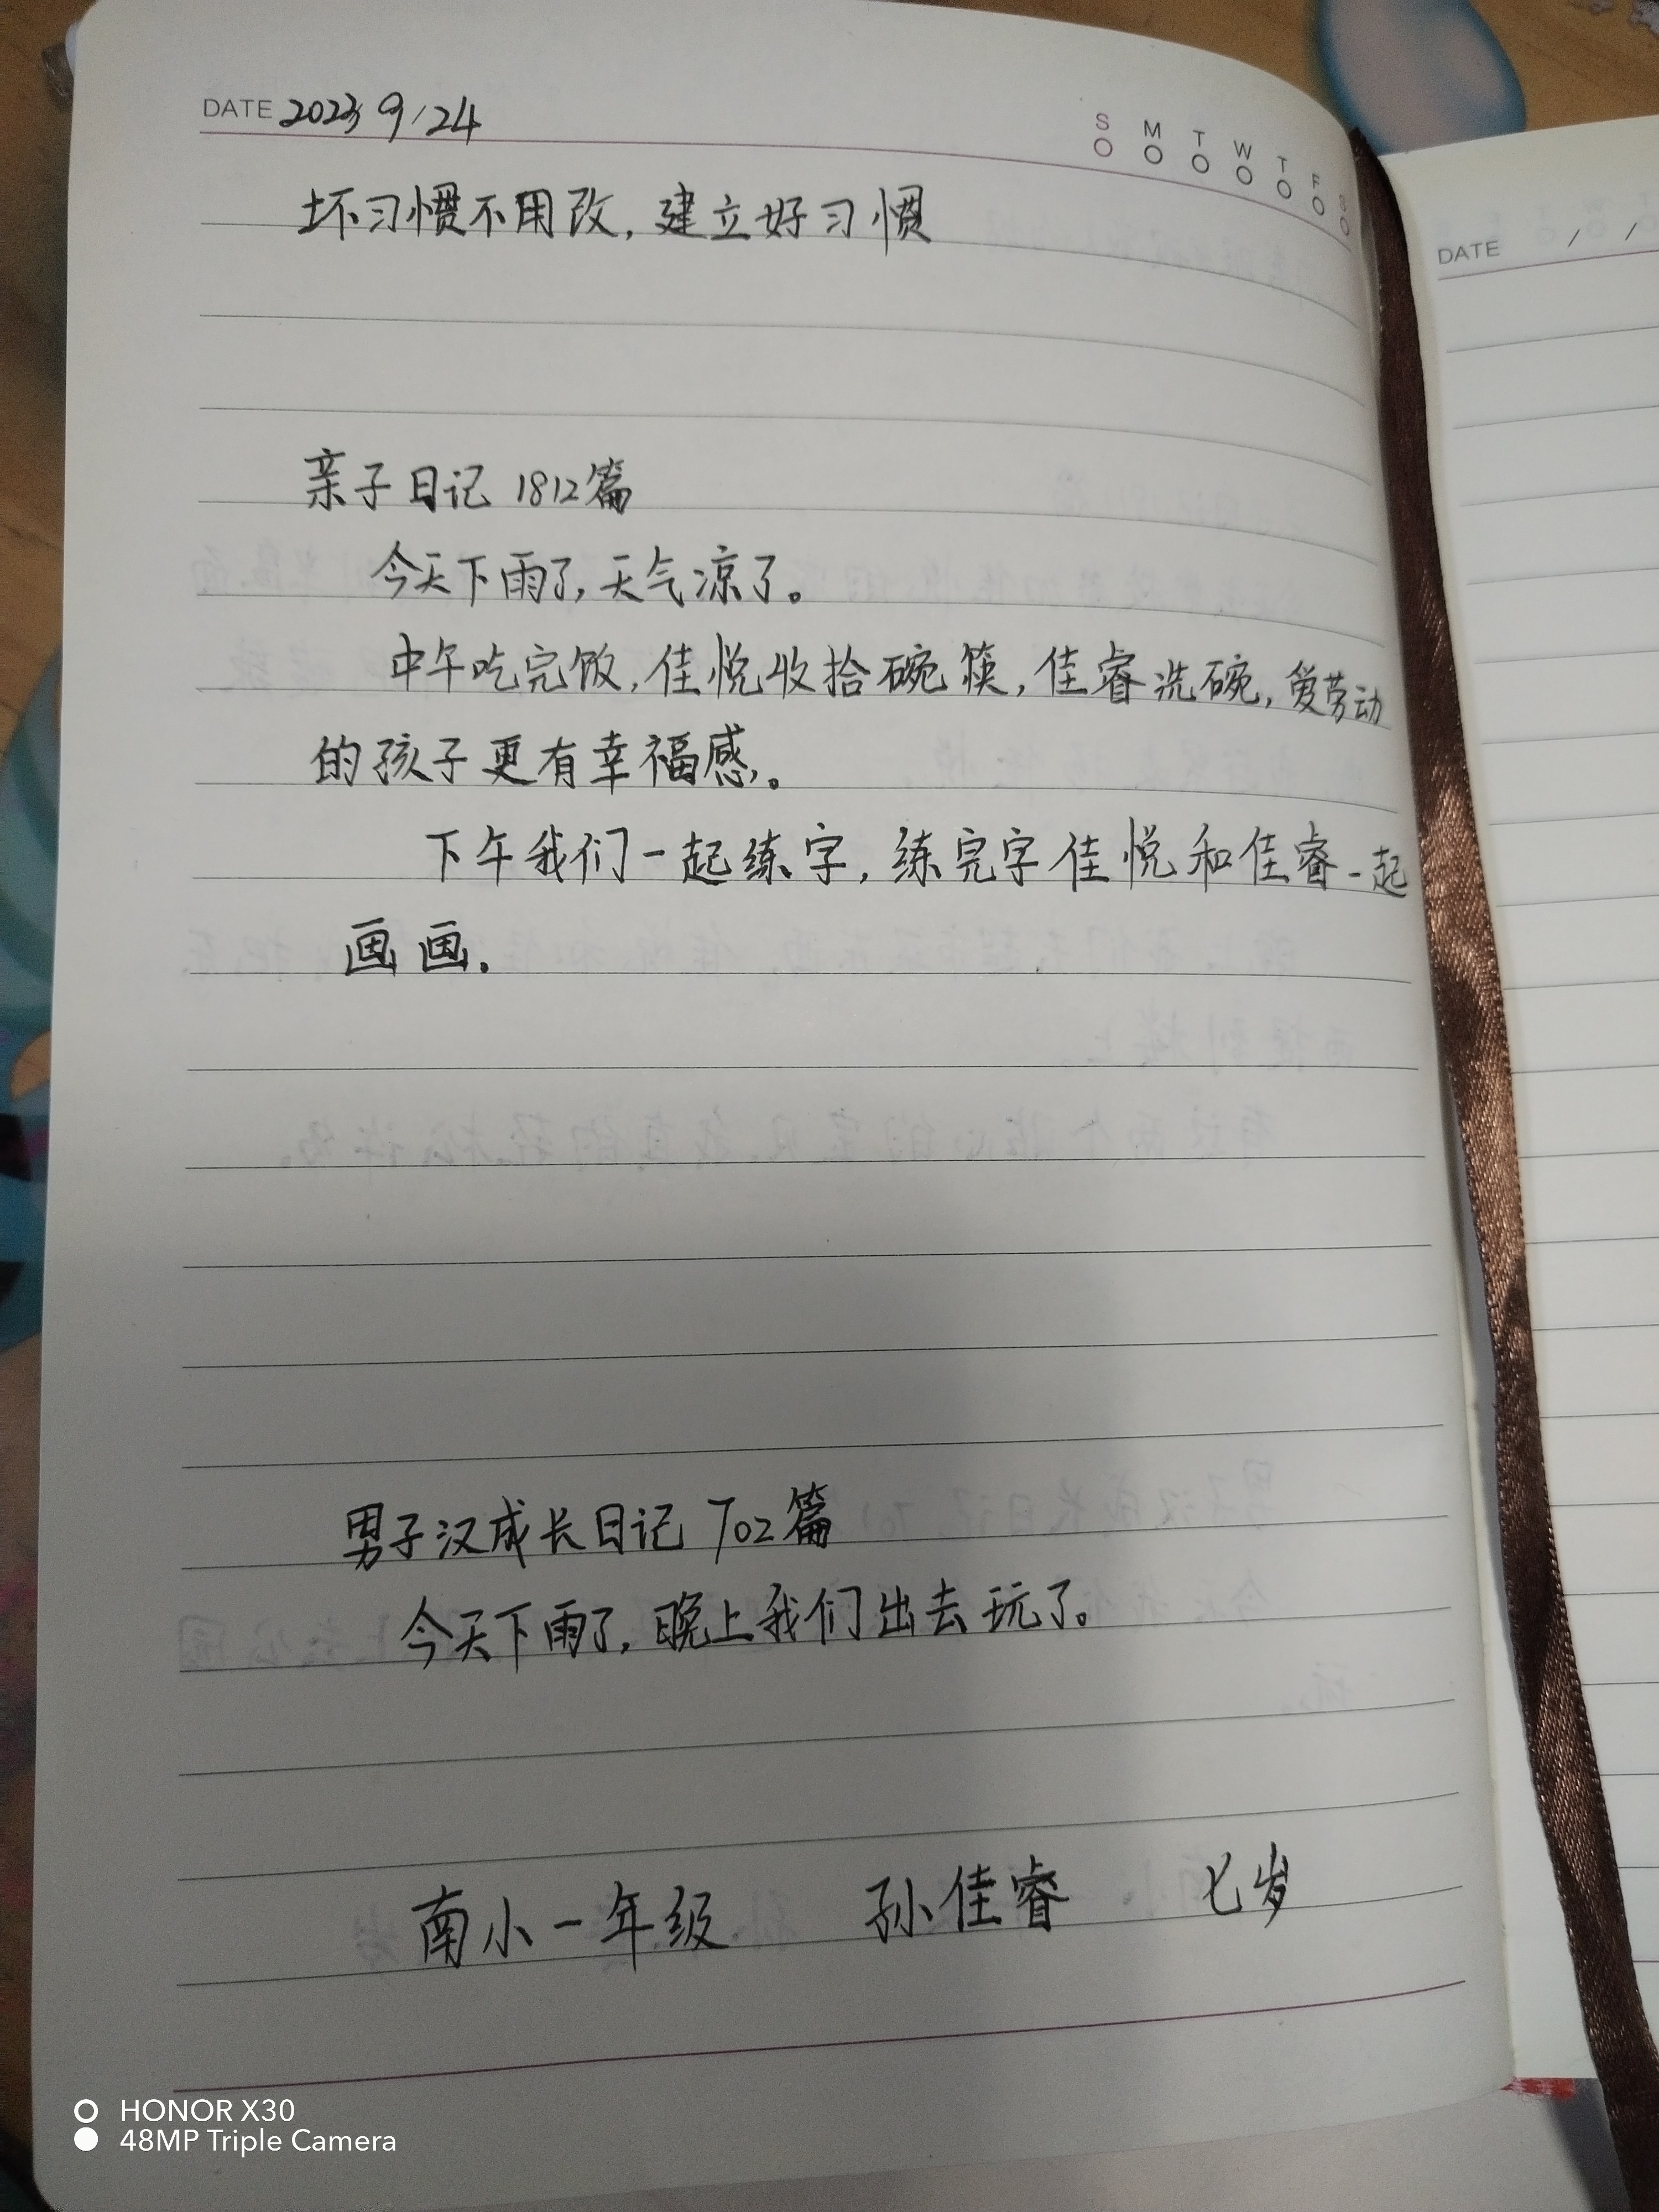 DATE 2023 9/24
S M T W T F S
坏习惯不用改，建立好习惯
亲子日记 1812篇
今天下雨了，天气凉了。
中午吃完饭，佳悦收拾碗筷，佳睿洗碗，爱劳动
的孩子更有幸福感。
下午我们一起练字，练完字佳悦和佳睿一起
画画.
男子汉成长日记 702篇
今天下雨了，晚上我们出去玩了。
南小一年级 孙佳睿 七岁
DATE / /
HONOR X30
48MP Triple Camera